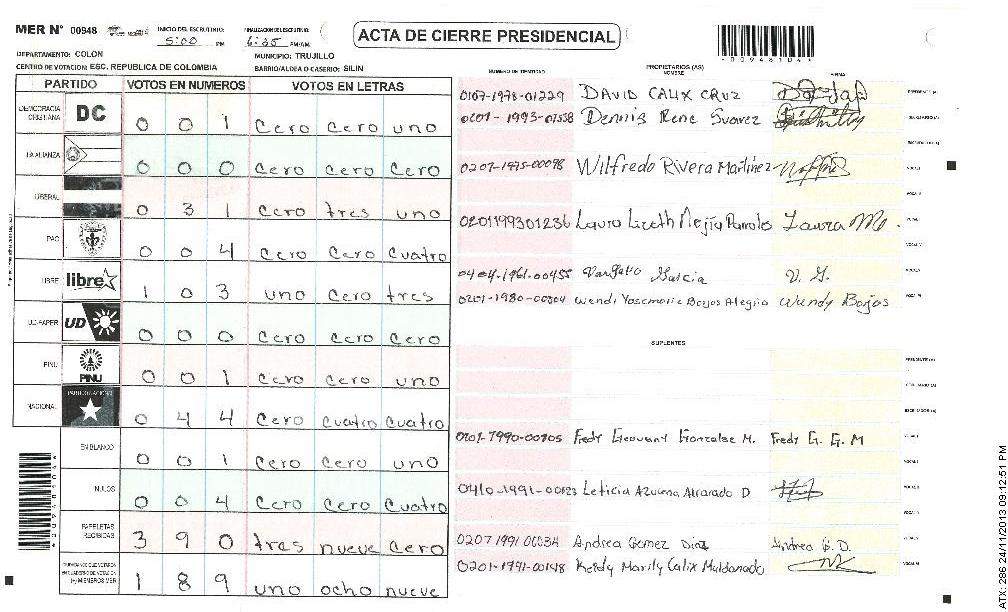 MER Nº 00948 INICIO DEL ESCRUTINIO: 5:00 PM FINALIZACION DEL ESCRUTINIO: 6:35 PM/AM
ACTA DE CIERRE PRESIDENCIAL
DEPARTAMENTO: COLON MUNICIPIO: TRUJILLO
CENTRO DE VOTACION: ESC. REPUBLICA DE COLOMBIA BARRIO/ALDEA O CASERIO: SILIN
PARTIDO VOTOS EN NUMEROS VOTOS EN LETRAS
DEMOCRACIA CRISTIANA DC 0 0 1 cero cero uno
0 0 0 cero cero cero
LIBERAL 0 3 1 cero tres uno
PAC 0 0 4 cero cero cuatro
LIBRE libre 1 0 3 uno cero tres
UD-FAPER UD 0 0 0 cero cero cero
PINU PINU 0 0 1 cero cero uno
NACIONAL PARTIDO NACIONAL 0 4 4 cero cuatro cuatro
EN BLANCO 0 0 1 cero cero uno
NULOS 0 0 4 cero cero cuatro
PAPELETAS RECIBIDAS 3 9 0 tres nueve cero
CIUDADANOS QUE VOTARON EN CUADERNO DE VOTACION (+) MIEMBROS MER 1 8 9 uno ocho nueve
NUMERO DE IDENTIDAD PROPIETARIOS (AS) NOMBRE FIRMA
0107-1978-01229 DAVID CALIX CRUZ
Dennis Rene Suarez
0207-1975-00098 Wilfredo Rivera Martinez
0201199301236 Laura Lizeth Mejía Laura M.
0404-1961-00455 Garcia V. G.
0201-1980-00304 Wendi Borjas Alegria Wendy Borjas
SUPLENTES
Fredy Geovany Gonzalez M. Fredy G. G. M
Leticia Azucena Alvarado D
0207 1991 00034 Andrea Gomez Diaz Andrea G. D.
0201-1991-00148 Keldy Marily Calix Maldonado
ATX: 286 24/11/2013 09:12:51 PM